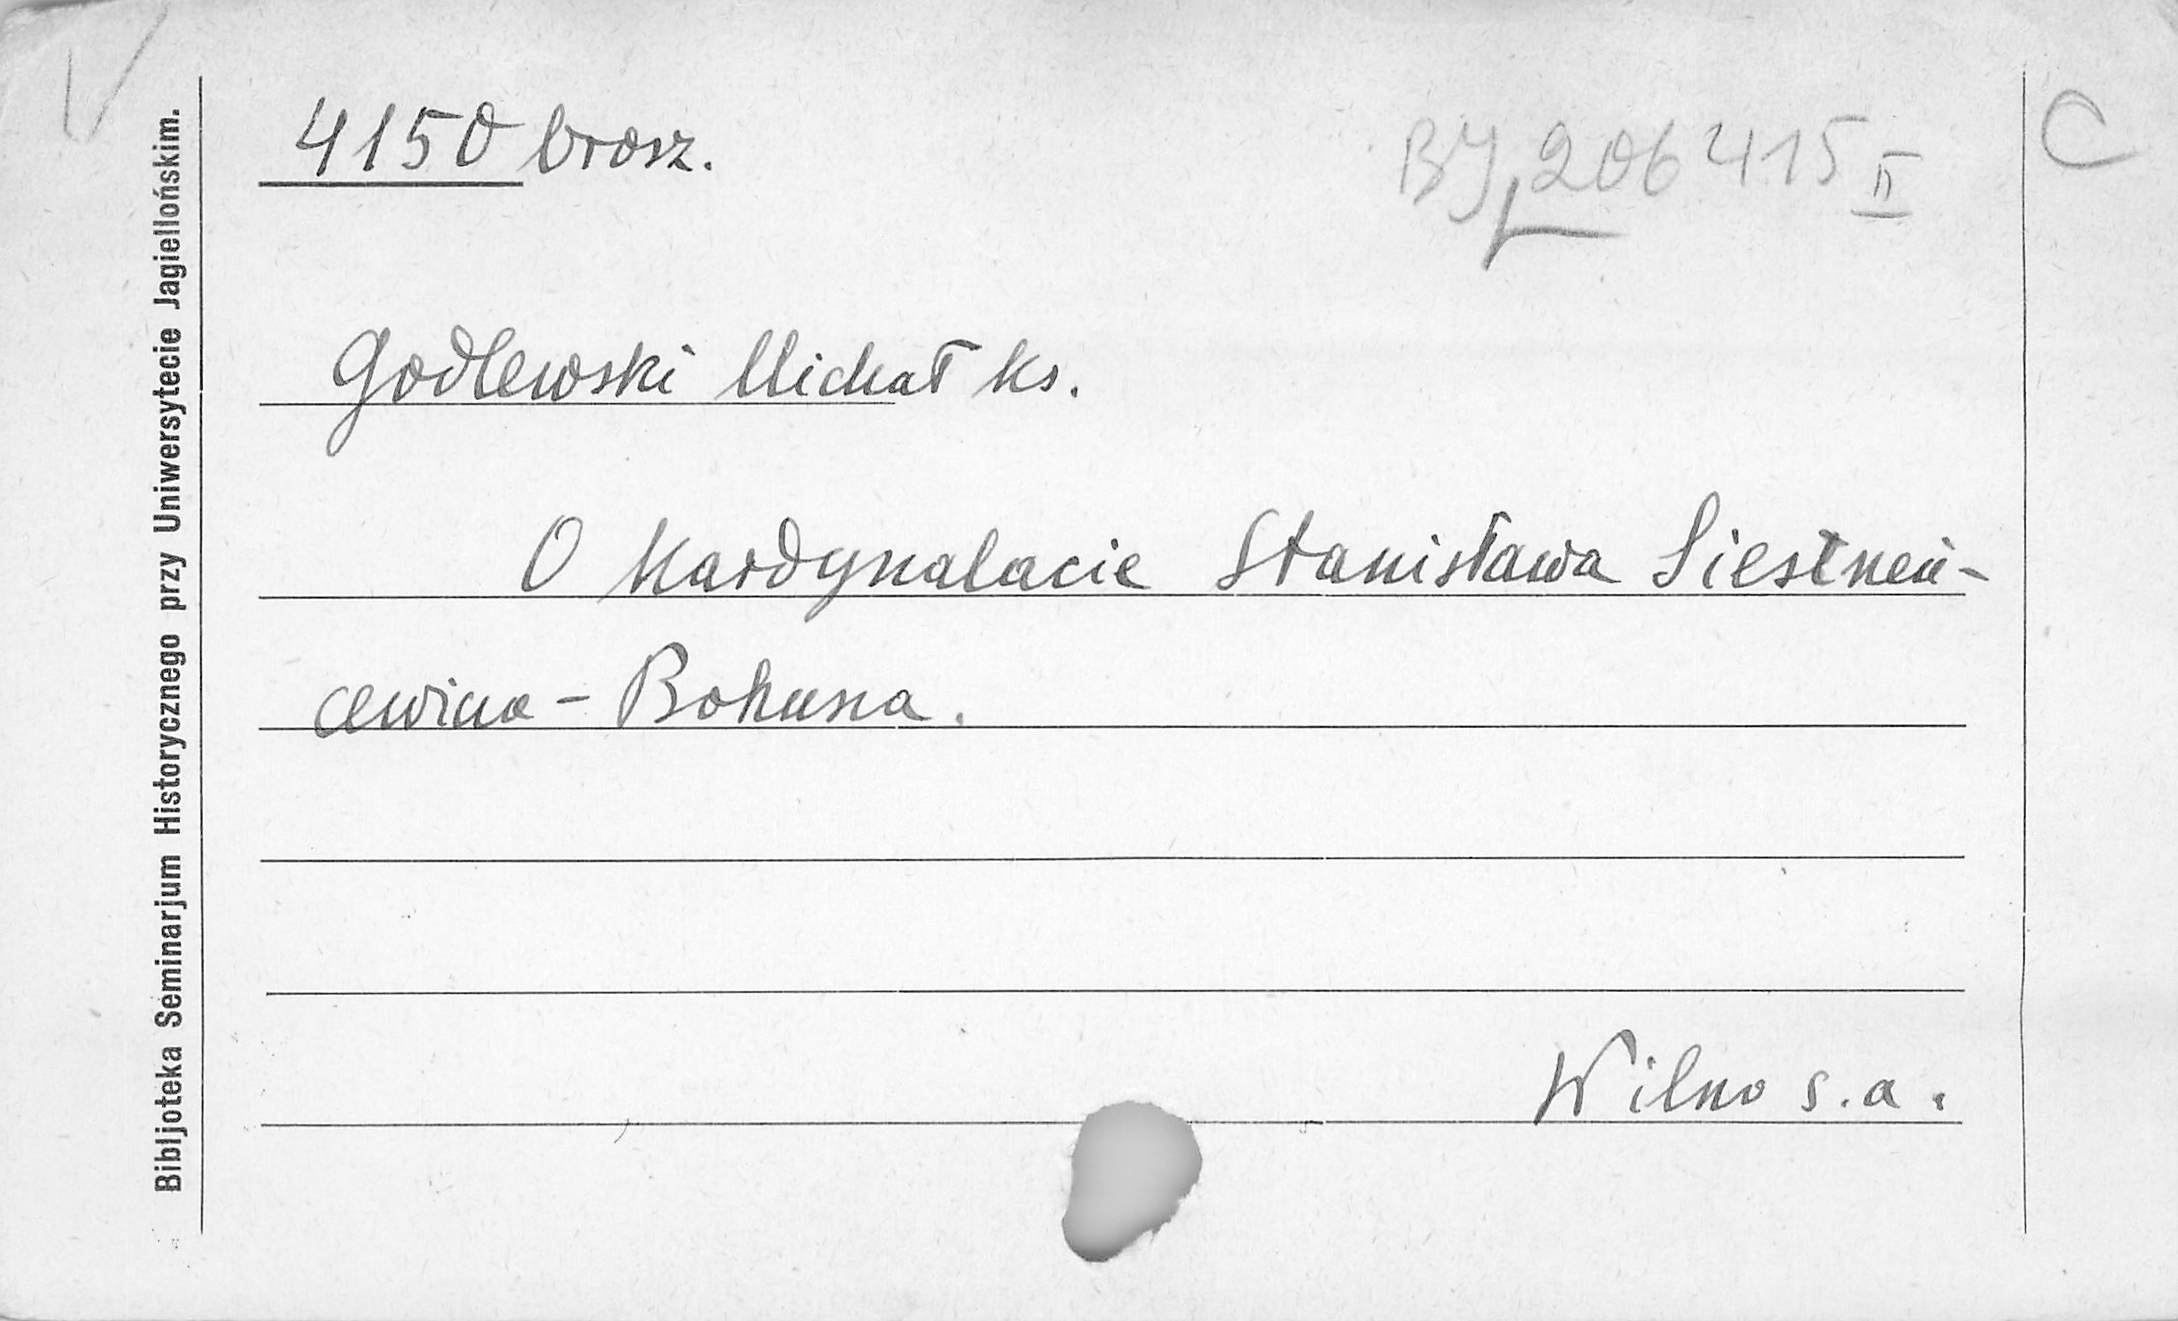 4150 brosz.
BJ 206415 II
C
Godlewski Michał ks.
O Kardynalacie Stanisława Siestrzeń-
cewicza - Bohusza.
Wilno s.a.
Bibljoteka Seminarjum Historycznego przy Uniwersytecie Jagiellońskim.